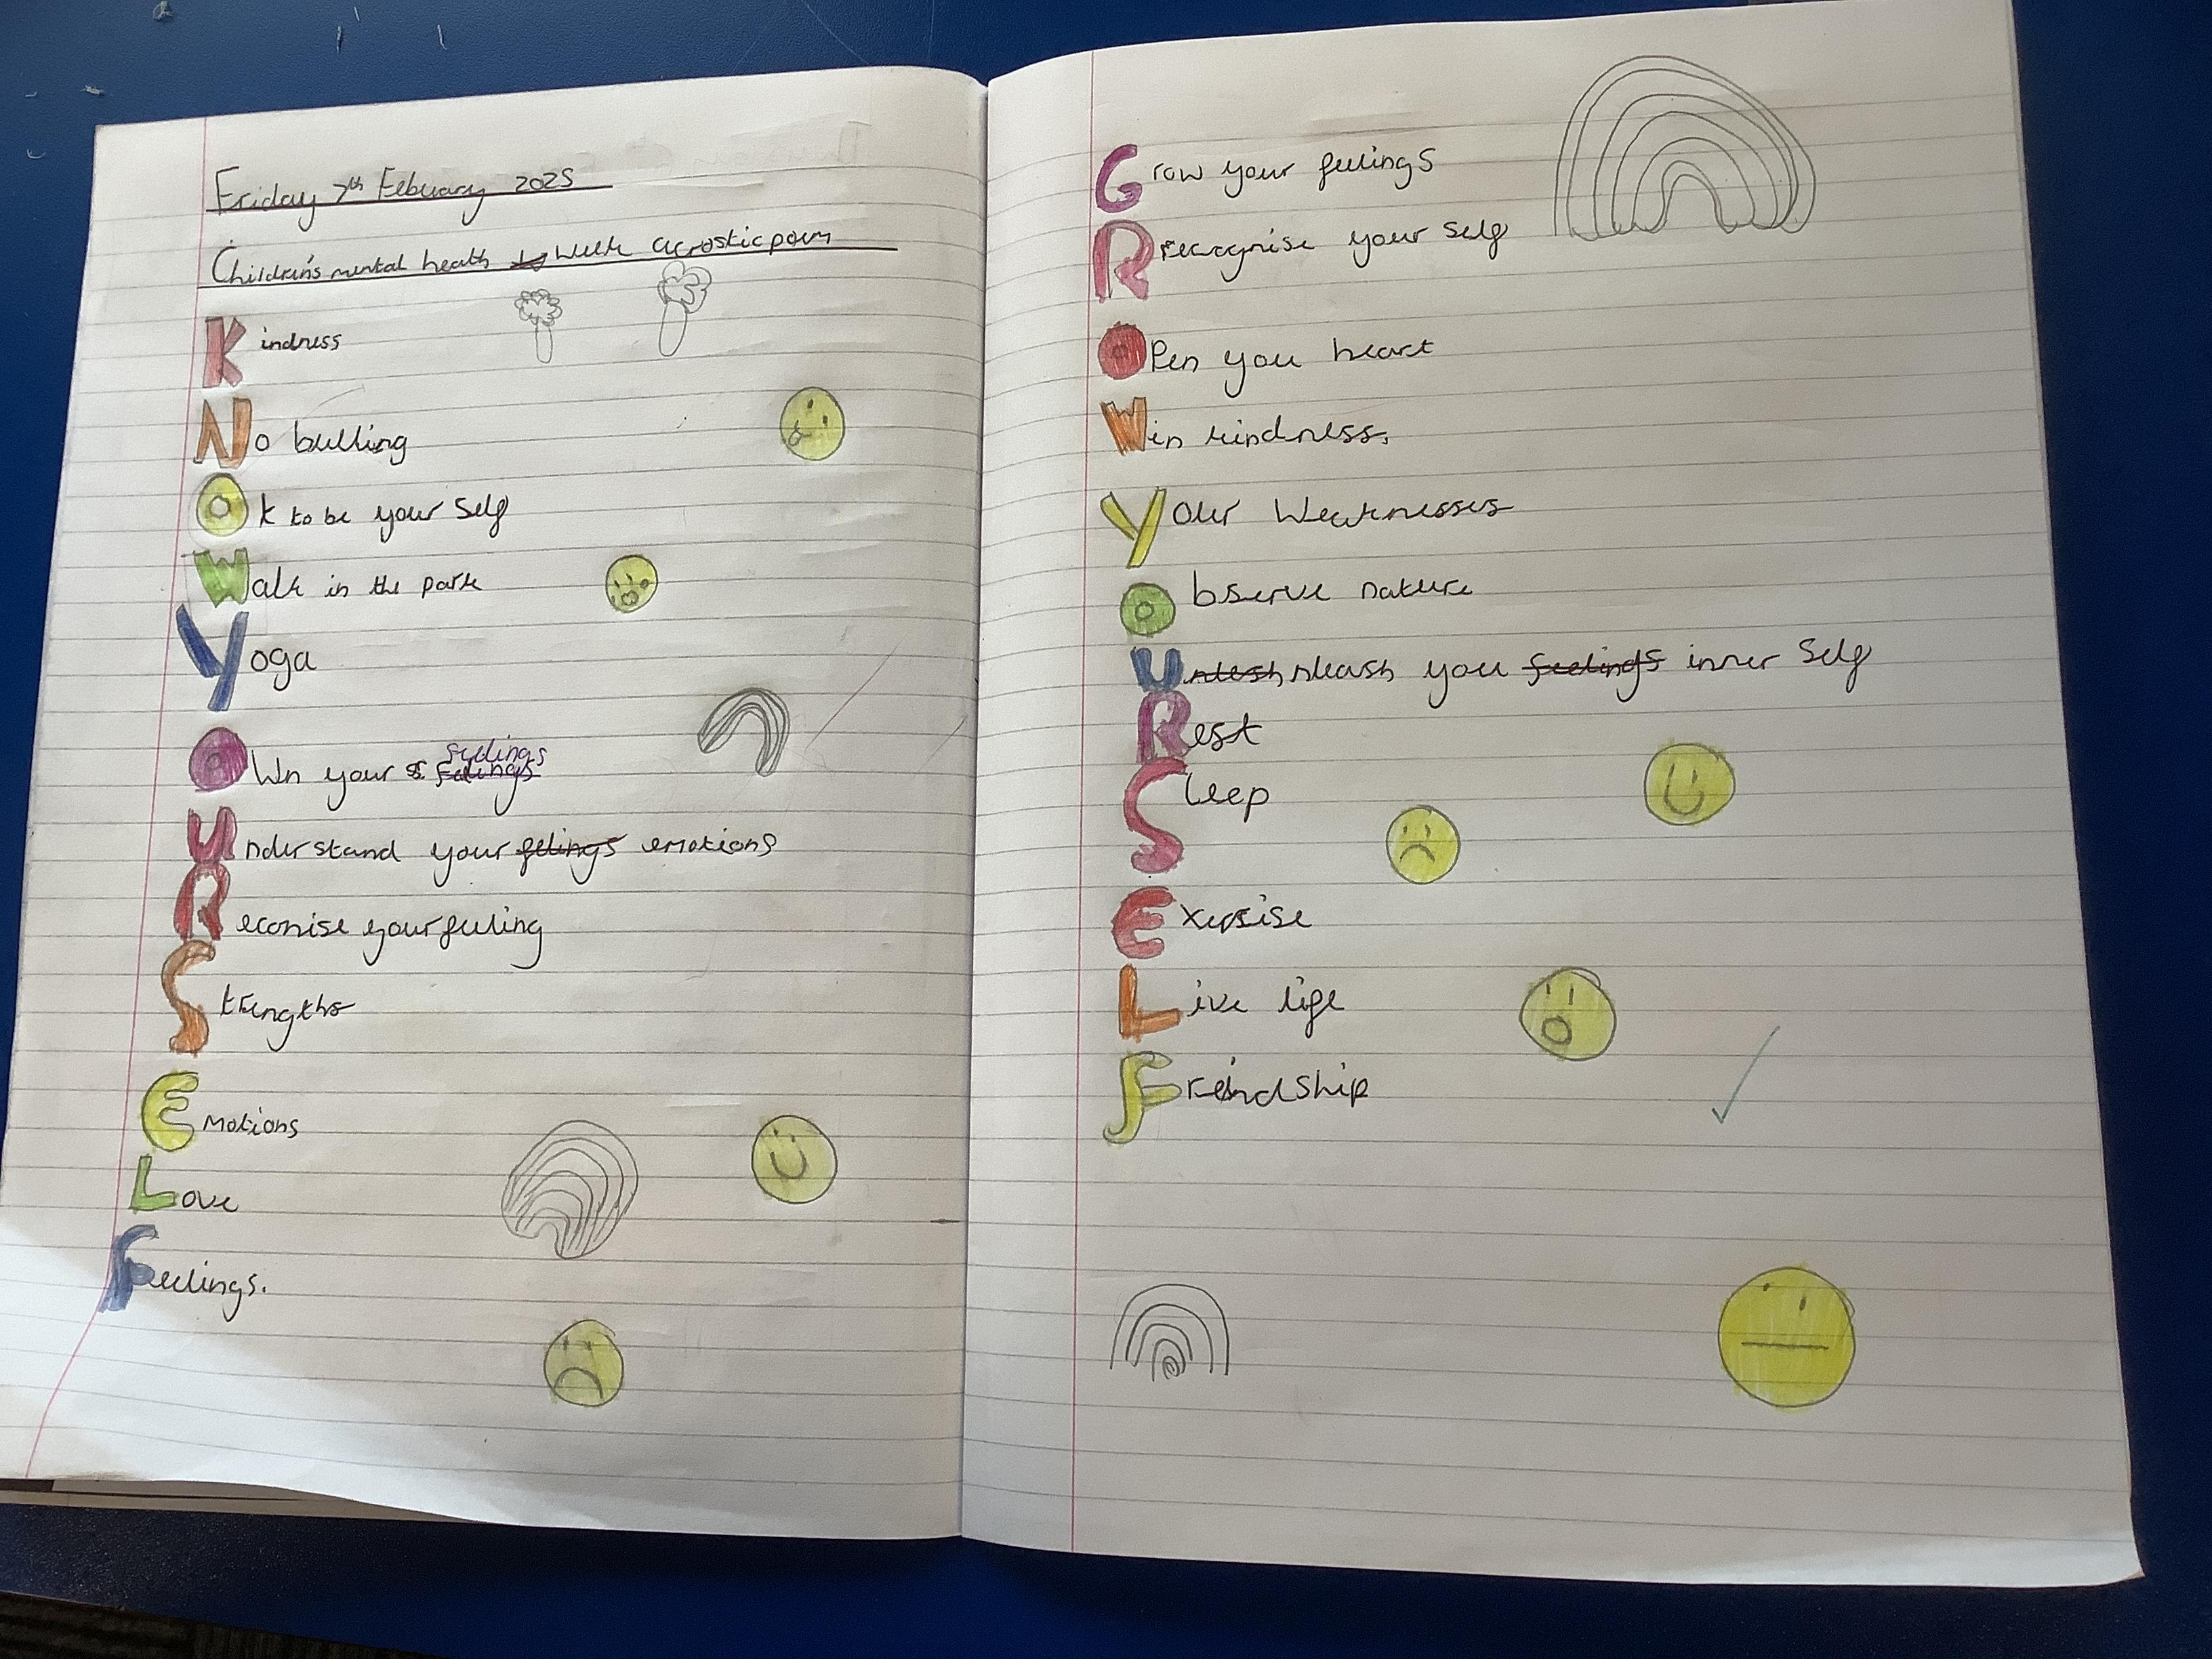 Friday 7th Febuary 2025
Children's mental health week acrostic poem
Kindness
No bulling
Ok to be your self
Walk in the park
Yoga
Own your feelings feelings
Understand your felings emotions
Reconise your feeling
Strengths
Emotions
Love
Feelings.
Grow your feelings
Rrecognise your self
Open you heart
Win kindness.
Your Weaknesses
Observe nature
Unlesh nleash you feelings inner self
Rest
Sleep
Exersise
Live life
Freindship